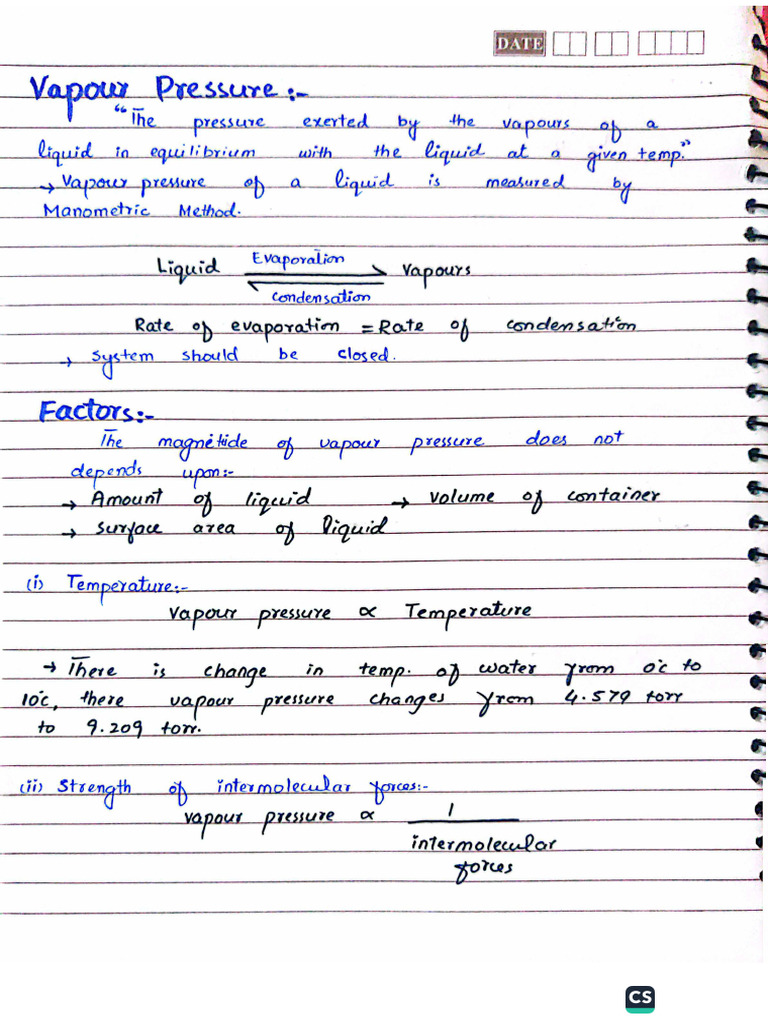 DATE
Vapour Pressure:-
"The pressure exerted by the vapours of a
liquid in equilibrium with the liquid at a given temp."
→ Vapour pressure of a liquid is measured by
Manometric Method.
Liquid Evaporation ⇌ Condensation Vapours
Rate of evaporation = Rate of condensation
→ System should be closed.
Factors:-
The magnetide of vapour pressure does not
depends upon:-
→ Amount of liquid → Volume of container
→ Surface area of liquid
(i) Temperature:-
Vapour pressure ∝ Temperature
→ There is change in temp. of water from 0°c to
10°c, there vapour pressure changes from 4.579 torr
to 9.209 torr.
(ii) Strength of intermolecular forces:-
vapour pressure ∝ 1
intermolecular
forces
CS